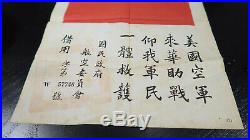 美國空軍
來華助戰
仰我軍民
一體救護
國民政府
航空委員會
借用
第
W 57246
號